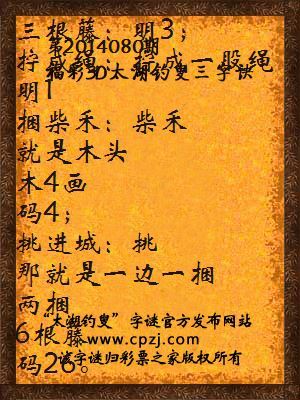 三根藤：明3；
第2014080期
拧成绳：拧成一股绳
福彩3D太湖钓叟三字诀
明1
捆柴禾：柴禾
就是木头
木4画
码4；
挑进城：挑
那就是一边一捆
两捆
“太湖钓叟”字谜官方发布网站
6根藤
www.cpzj.com
码26。
该字谜归彩票之家版权所有